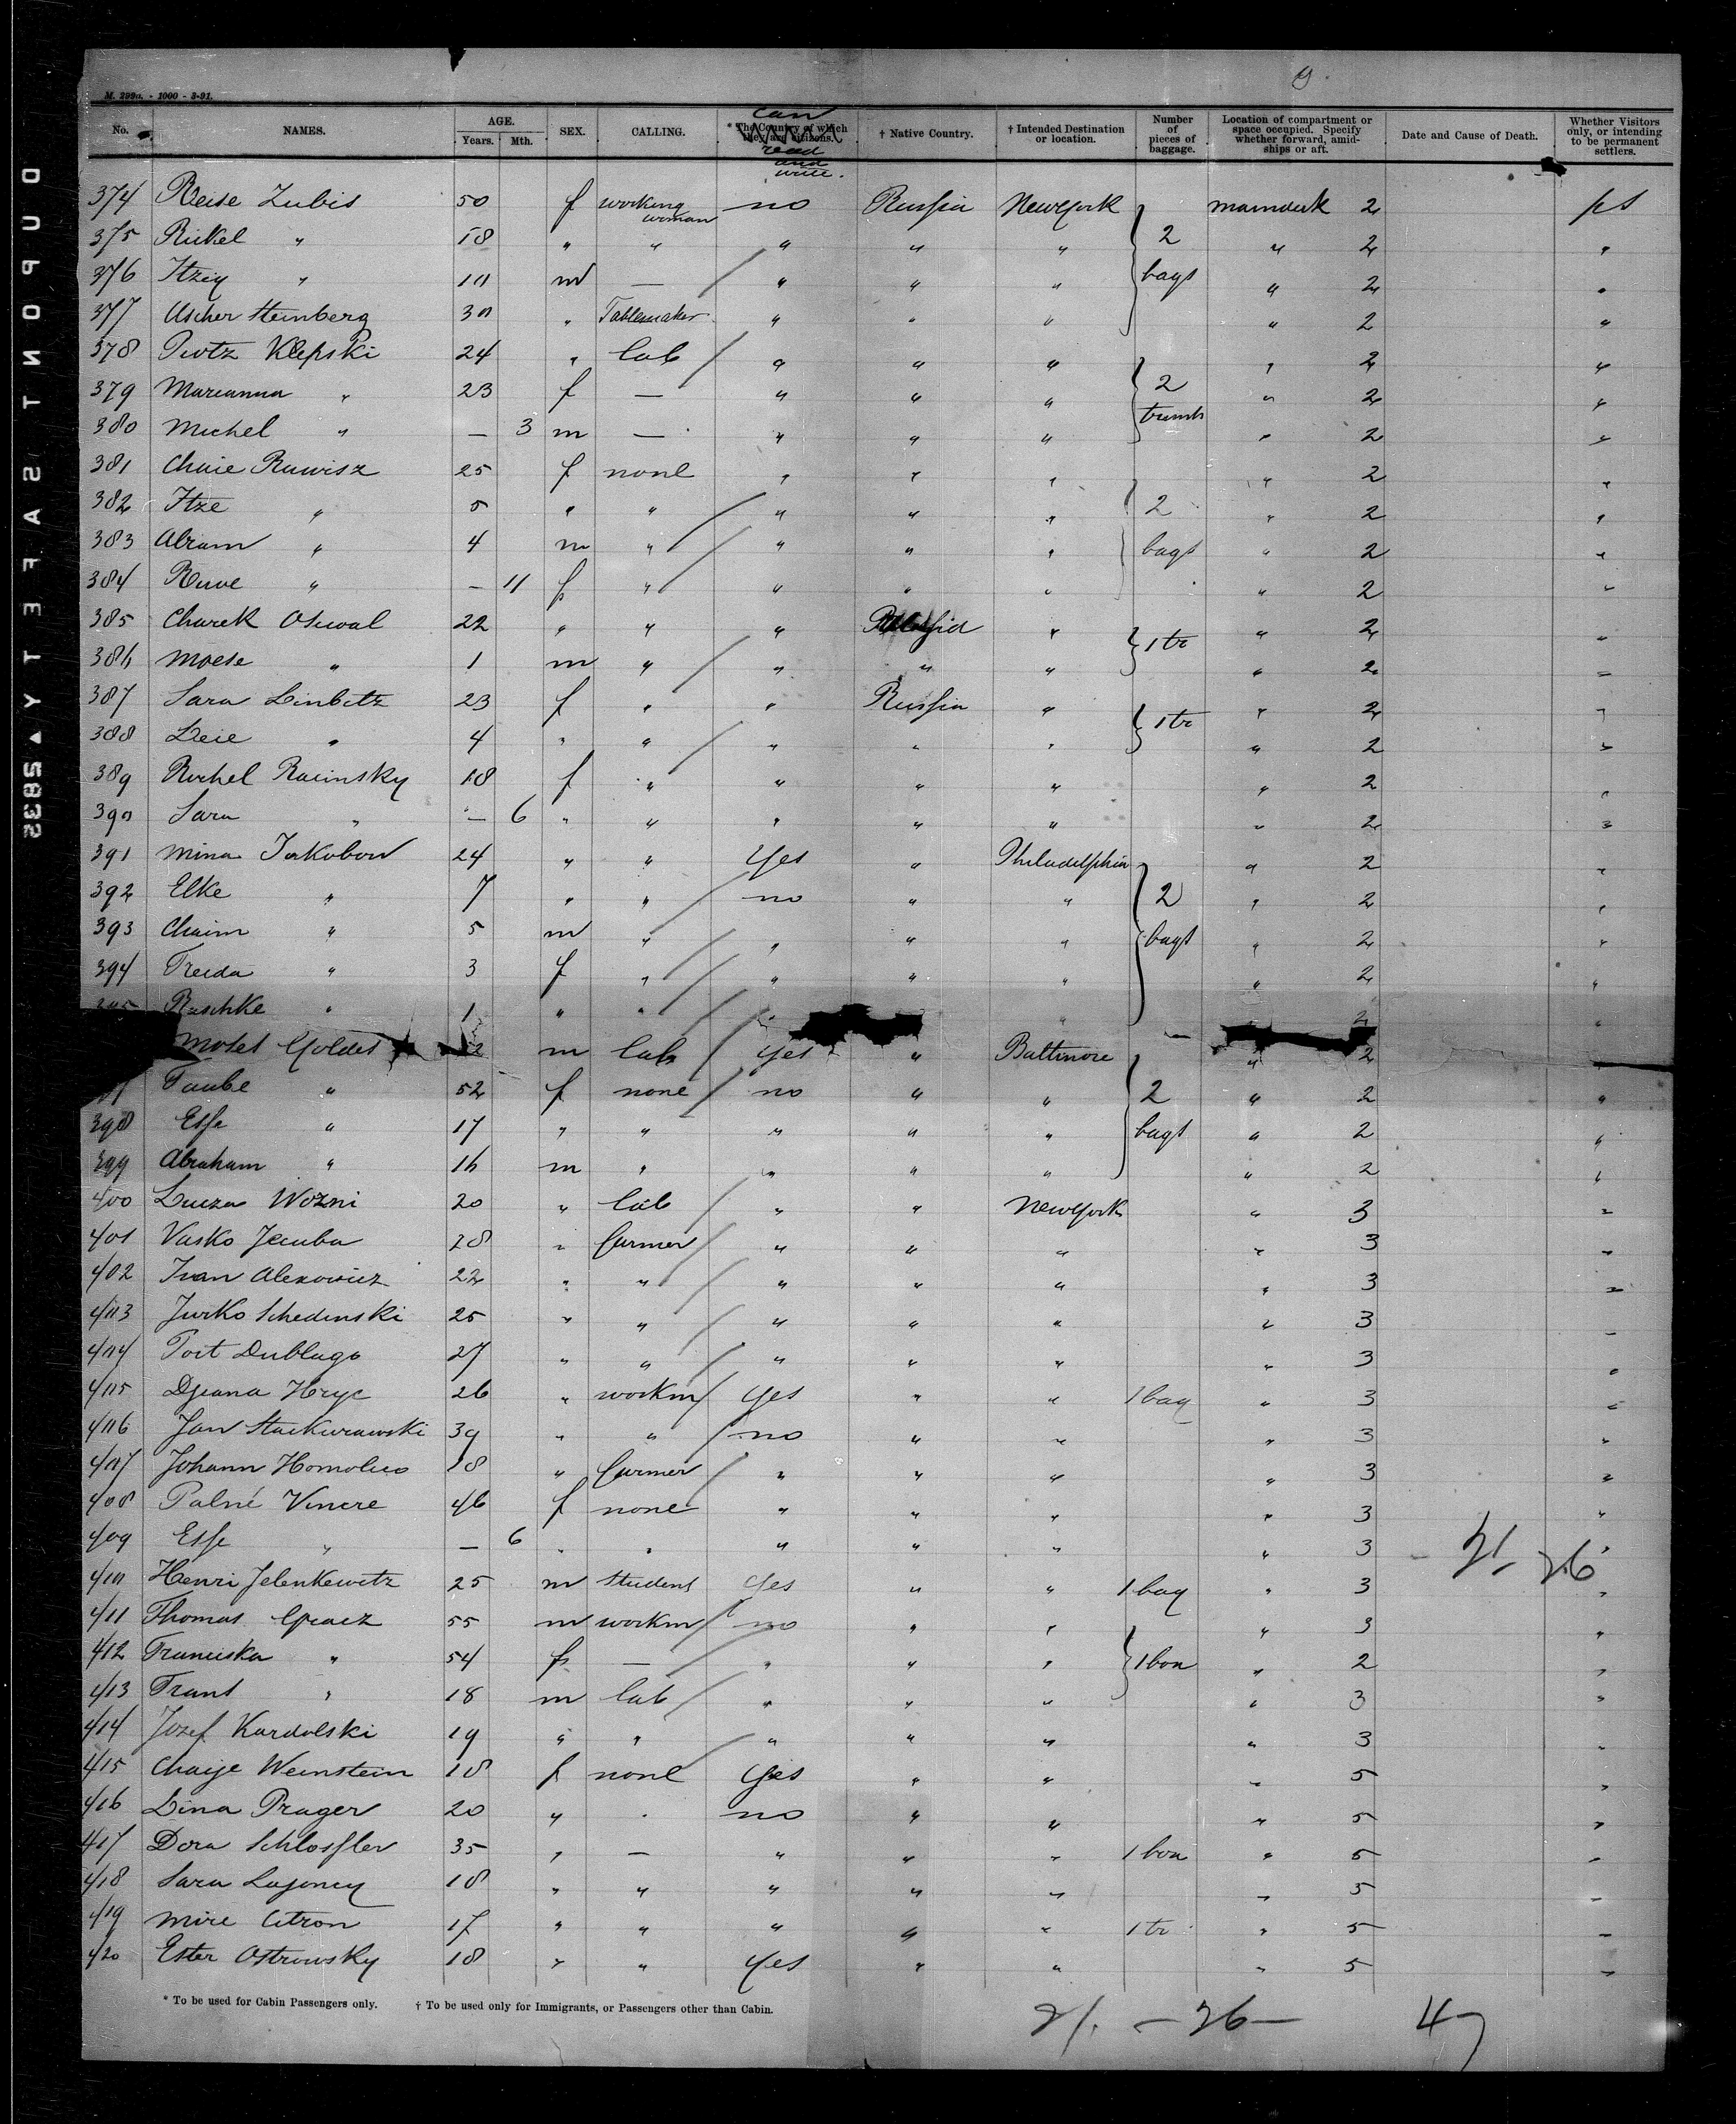 DUPONT SAFETY 5835
9
M. 299a. - 1000 - 3-91.
No. NAMES. AGE. Years. Mth. SEX. CALLING. * The Country of which they are citizens. can read and write. † Native Country. † Intended Destination or location. Number of pieces of baggage. Location of compartment or space occupied. Specify whether forward, amidships or aft. Date and Cause of Death. Whether Visitors only, or intending to be permanent settlers.
374 Reise Zubis 50 f working woman no Russia New York maindeck 2 ps
375 Rickel " 18 " " " " " 2 " 2 "
376 Itzig " 10 m — " " " bags " 2 "
377 Ascher Steinberg 30 " Tablemaker " " " " 2 "
378 Piotz Klepski 24 " lab " " " " 2 "
379 Marianna " 23 f — " " " 2 " 2 "
380 Michel " — 3 m — " " " trunks " 2 "
381 Chaie Ruwisz 25 f none " " " " 2 "
382 Itze " 5 " " " " " 2 " 2 "
383 Abram " 4 m " " " " bags " 2 "
384 " — 11 f " " " " " 2 "
385 Churek 22 " " " " 1 tr " 2 "
386 Moese " 1 m " " " " " 2 "
387 Sara 23 f " " Russia " 1 tr " 2 "
388 Leie " 4 " " " " " " 2 "
389 Rochel Racinsky 18 f " " " " " 2 "
390 Sara " — 6 " " " " " " 2 "
391 Mina Jakobow 24 " " yes " Philadelphia " 2 "
392 Elke " 7 " " no " " 2 " 2 "
393 Chaim " 5 m " " " " bags " 2 "
394 Freida " 3 f " " " " " 2 "
395 Raschke " 1 " " " " 2 "
Moses Goldes m lab yes " Baltimore " 2
Taube " 52 f none no " " 2 " 2 "
398 Esse " 17 " " " " " bags " 2 "
399 Abraham " 16 m " " " " " 2 "
400 Wozni 20 " lab " " New York " 3 "
401 Vasko Jecuba 28 " farmer " " " " 3 "
402 Ivan Alexowicz 22 " " " " " " 3 "
403 Jurko Schedinski 25 " " " " " " 3 "
404 27 " " " " " " 3 "
405 Hryc 26 " workm yes " " 1 bag " 3 "
406 Jan 39 " " no " " " 3 "
407 Johann 18 " farmer " " " " 3 "
408 46 f none " " " " 3 "
409 Esse " — 6 " " " " " " 3 "
21 26
410 Henri Jelenkewitz 25 m student yes " " 1 bag " 3 "
411 Thomas 55 m workm no " " " 3 "
412 Franciska " 54 f — " " " 1 box " 2 "
413 Frans " 18 m lab " " " " 3 "
414 Jozef Kardolski 19 " " " " " " 3 "
415 Chaije Weinstein 18 f none yes " " " 5 "
416 Lina Prager 20 " " no " " " 5 "
417 Dora Schlossler 35 " — " " " 1 box " 5 "
418 Sara 18 " " " " " " 5 "
419 Mire Citron 17 " " " " " 1 tr " 5 "
420 Ester Ostrowsky 18 " " yes " " " 5 "
* To be used for Cabin Passengers only. † To be used only for Immigrants, or Passengers other than Cabin.
21. - 26 - 47